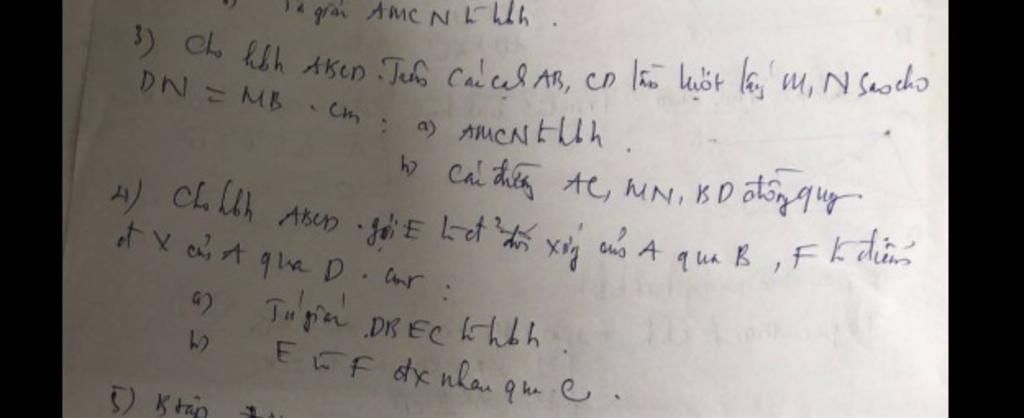 Tứ giác AMCN là hbh.
3) Cho hbh ABCD. Trên các cạnh AB, CD lần lượt lấy M, N sao cho
DN = MB. cm: a) AMCN là hbh.
b) Các đường AC, MN, BD đồng quy
4) Cho hbh ABCD. gọi E là đ² đối xứng của A qua B, F là điểm
đx của A qua D. cmr:
a) Tứ giác DBEC là hbh.
b) E và F đx nhau qua C.
5)